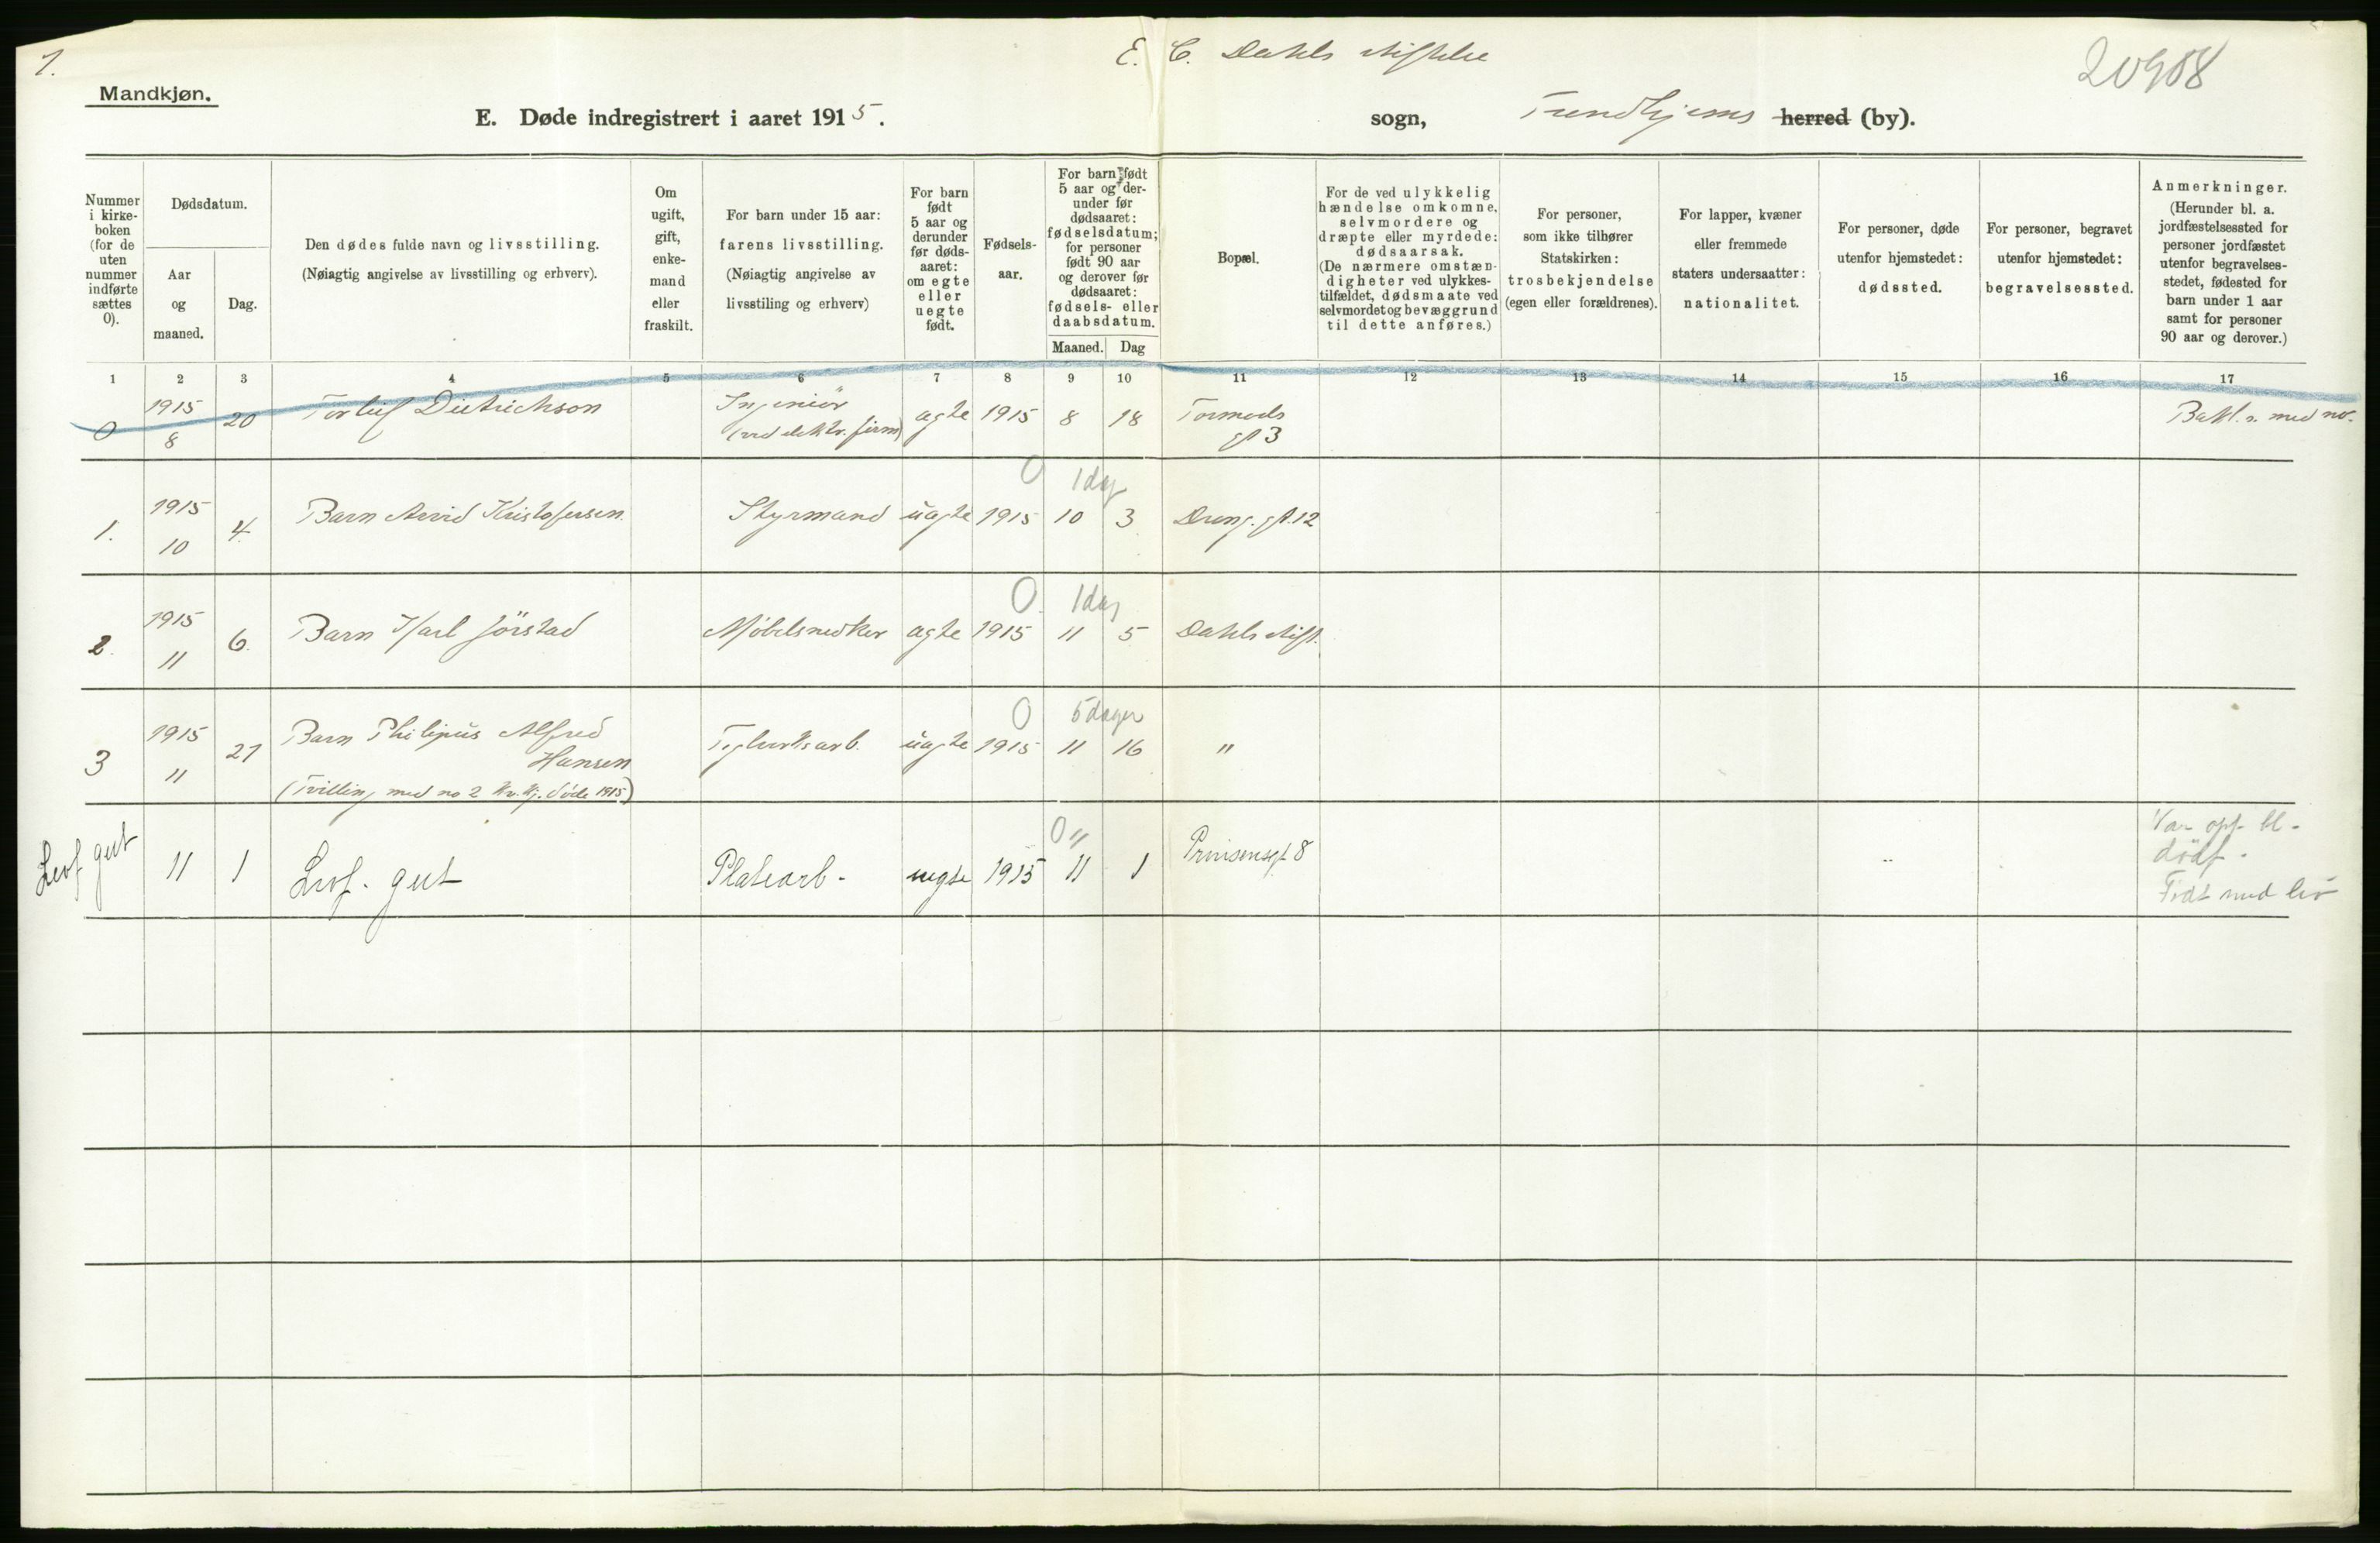 1.
E. C. Dahls Stiftelse
20908
Mandkjøn.
E. Døde indregistrert i aaret 1915.
sogn,
Trondhjems herred (by).
Nummer i kirke-boken (for de uten nummer indførte sættes 0).
Dødsdatum.
Aar og maaned.
Dag.
Den dødes fulde navn og livsstilling.
(Nøiagtig angivelse av livsstilling og erhverv).
Om ugift, gift, enke-mand eller fraskilt.
For barn under 15 aar:
farens livsstilling.
(Nøiagtig angivelse av
livsstiling og erhverv)
For barn født 5 aar og derunder før døds-aaret: om egte eller uegte født.
Fødsels-aar.
For barn født 5 aar og der-under før dødsaaret: fødselsdatum; for personer født 90 aar og derover før dødsaaret: fødsels- eller daabsdatum.
Maaned. Dag
Bopæl.
For de ved ulykkelig hændelse omkomne, selvmordere og dræpte eller myrdede: dødsaarsak. (De nærmere omstæn-digheter ved ulykkes-tilfældet, dødsmaate ved selvmordet og bevæggrund til dette anføres.)
For personer, som ikke tilhører Statskirken: trosbekjendelse (egen eller forældrenes).
For lapper, kvæner eller fremmede staters undersaatter: nationalitet.
For personer, døde utenfor hjemstedet: dødssted.
For personer, begravet utenfor hjemstedet: begravelsessted.
Anmerkninger.
(Herunder bl. a. jordfæstelsessted for personer jordfæstet utenfor begravelses-stedet, fødested for barn under 1 aar samt for personer 90 aar og derover.)
1 2 3 4 5 6 7 8 9 10 11 12 13 14 15 16 17
0 1915 8 20 Torleif Dietrichson Ingeniör (ved elektr. firm) ægte 1915 8 18 Tormods gt 3 Bakl. s. med no.
0 1 dag
1. 1915 10 4. Barn Arvid Kristofersen Styrmand uægte 1915 10 3 Drong. gt. 12
0 1 dag
2. 1915 11 6. Barn Karl Jörstad Møbelsnedker ægte 1915 11 5 Dahls Stift.
0 5 dager
3 1915 11 21 Barn Philipus Alfred Hansen Teglverksarb. uægte 1915 11 16 "
(Tvilling med no 2 kv. kj. döde 1915)
0 "
Levf gut 11 1 Levf. gut Platearb - uegte 1915 11 1 Prinsensgt 8
Var opf. bl. dödf.
Födt med liv